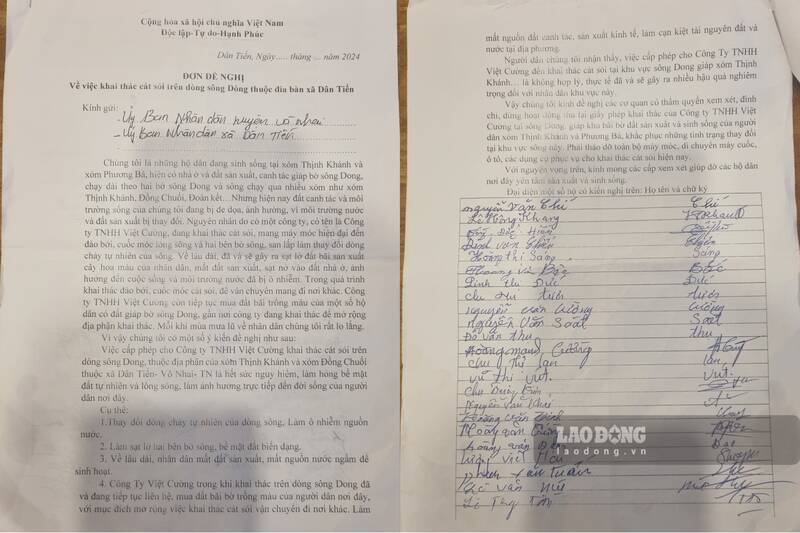 Cộng hòa xã hội chủ nghĩa Việt Nam
Độc lập-Tự do-Hạnh Phúc
Dân Tiến, Ngày..... tháng ... năm 2024
ĐƠN ĐỀ NGHỊ
Về việc khai thác cát sỏi trên dòng sông Dong thuộc địa bàn xã Dân Tiến
Kính gửi:
- Uỷ Ban Nhân dân huyện võ nhai
- Uỷ Ban Nhân dân xã Dân Tiến
Chúng tôi là những hộ dân đang sinh sống tại xóm Thịnh Khánh và
xóm Phương Bá, hiện có nhà ở và đất sản xuất, canh tác giáp bờ sông Dong,
chạy dài theo hai bờ sông Dong và sông chạy qua nhiều xóm như xóm
Thịnh Khánh, Đồng Chuối, Đoàn kết... Nhưng hiện nay đất canh tác và môi
trường sống của chúng tôi đang bị đe dọa, ảnh hưởng, vì môi trường nước
và đất sản xuất bị thay đổi. Nguyên nhân do có một công ty, có tên là Công
ty TNHH Việt Cường, đang khai thác cát sỏi, mang máy móc hiện đại đến
đào bới, cuốc móc lòng sông và hai bên bờ sông, san lấp làm thay đổi dòng
chảy tự nhiên của sông. Về lâu dài, đã và sẽ gây ra sạt lở đất bãi sản xuất
cây hoa màu của nhân dân, mất đất sản xuất, sạt nở vào đất nhà ở, ảnh
hưởng đến cuộc sống và môi trường nước đã bị ô nhiễm. Trong quá trình
khai thác đào bới, cuốc móc cát sỏi, để vận chuyển mang đi nơi khác. Công
ty TNHH Việt Cường còn tiếp tục mua đất bãi trồng màu của một số hộ
dân có đất giáp bờ sông Dong, gần nơi công ty đang khai thác để mở rộng
địa phận khai thác. Mỗi khi mùa mưa lũ về nhân dân chúng tôi rất lo lắng.
Vì vậy chúng tôi có một số ý kiến đề nghị như sau:
Việc cấp phép cho Công ty TNHH Việt Cường khai thác cát sỏi trên
dòng sông Dong, thuộc địa phận của xóm Thịnh Khánh và xóm Đồng Chuối
thuộc xã Dân Tiến- Võ Nhai- TN là hết sức nguy hiểm, làm hỏng bề
mặt đất tự nhiên và lòng sông, làm ảnh hưởng trực tiếp đến đời sống của người
dân nơi đây.
Cụ thể:
1.Thay đổi dòng chảy tự nhiên của sông Dong. Làm ô nhiễm nguồn
nước.
2. Làm sạt lở hai bên bờ sông, bề mặt đất biến dạng.
3. Về lâu dài, nhân dân mất đất sản xuất, mất nguồn nước ngầm để
sinh hoạt.
4. Công Ty Việt Cường trong khi khai thác trên dòng sông Dong đã
và đang tiếp tục liên hệ, mua đất bãi bờ trồng màu của người dân nơi đây,
với mục đích mở rộng việc khai thác cát sỏi vận chuyển đi nơi khác. Làm
mất nguồn đất canh tác, sản xuất kinh tế, làm cạn kiệt tài nguyên đất và
nước tại địa phương.
Người dân chúng tôi nhận thấy, việc cấp phép cho Công Ty TNHH
Việt Cường đến khai thác cát sỏi tại khu vực sông Dong giáp xóm Thịnh
Khánh.... là không hợp lý, thực tế đã và sẽ gây ra nhiều hậu quả nghiêm
trọng đối với nhân dân khu vực này.
Vậy chúng tôi kính đề nghị các cơ quan có thẩm quyền xem xét, đình
chỉ, dừng hoạt động thu lại giấy phép khai thác của Công ty TNHH Việt
Cường tại sông Dong, giáp khu bãi bờ đất sản xuất và sinh sống của người
dân xóm Thịnh Khánh và Phương Bá, khắc phục những tình trạng thay đổi
tại khu vực sông này. Phải tháo dỡ toàn bộ máy móc, di chuyển máy cuốc,
ô tô, các dụng cụ phục vụ cho khai thác cát sỏi hiện nay.
Với nguyện vọng trên, kính mong các cấp xem xét giúp đỡ các hộ dân
nơi đây yên tâm sản xuất và sinh sống.
Đại diện một số hộ có kiến nghị trên: Họ tên và chữ ký
nguyễn Văn Chí Chí
Lê Hồng Khang
Đinh văn
Hoàng Thị Sáng Sáng
Bốc
Đinh thị Đức Đức
Chu tưới tưới
nguyễn văn Cường Cường
nguyễn Văn Soát Soát
Đỗ văn thu thu
Hoàng mạnh Cường
chu Thị lan lan
vũ thị vut. vut.
Nguyễn Văn
Hoàng văn
Hoàng văn
Hoàng văn
LAO ĐỘNG
laodong.vn